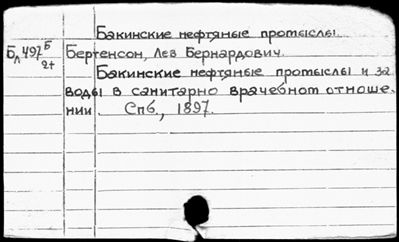 Бакинские нефтяные промыслы
Бл 497 Б Бертенсон, Лев Бернардович.
2+ Бакинские нефтяные промыслы и за
воды в санитарно врачебном отноше-
нии. Спб., 1897.